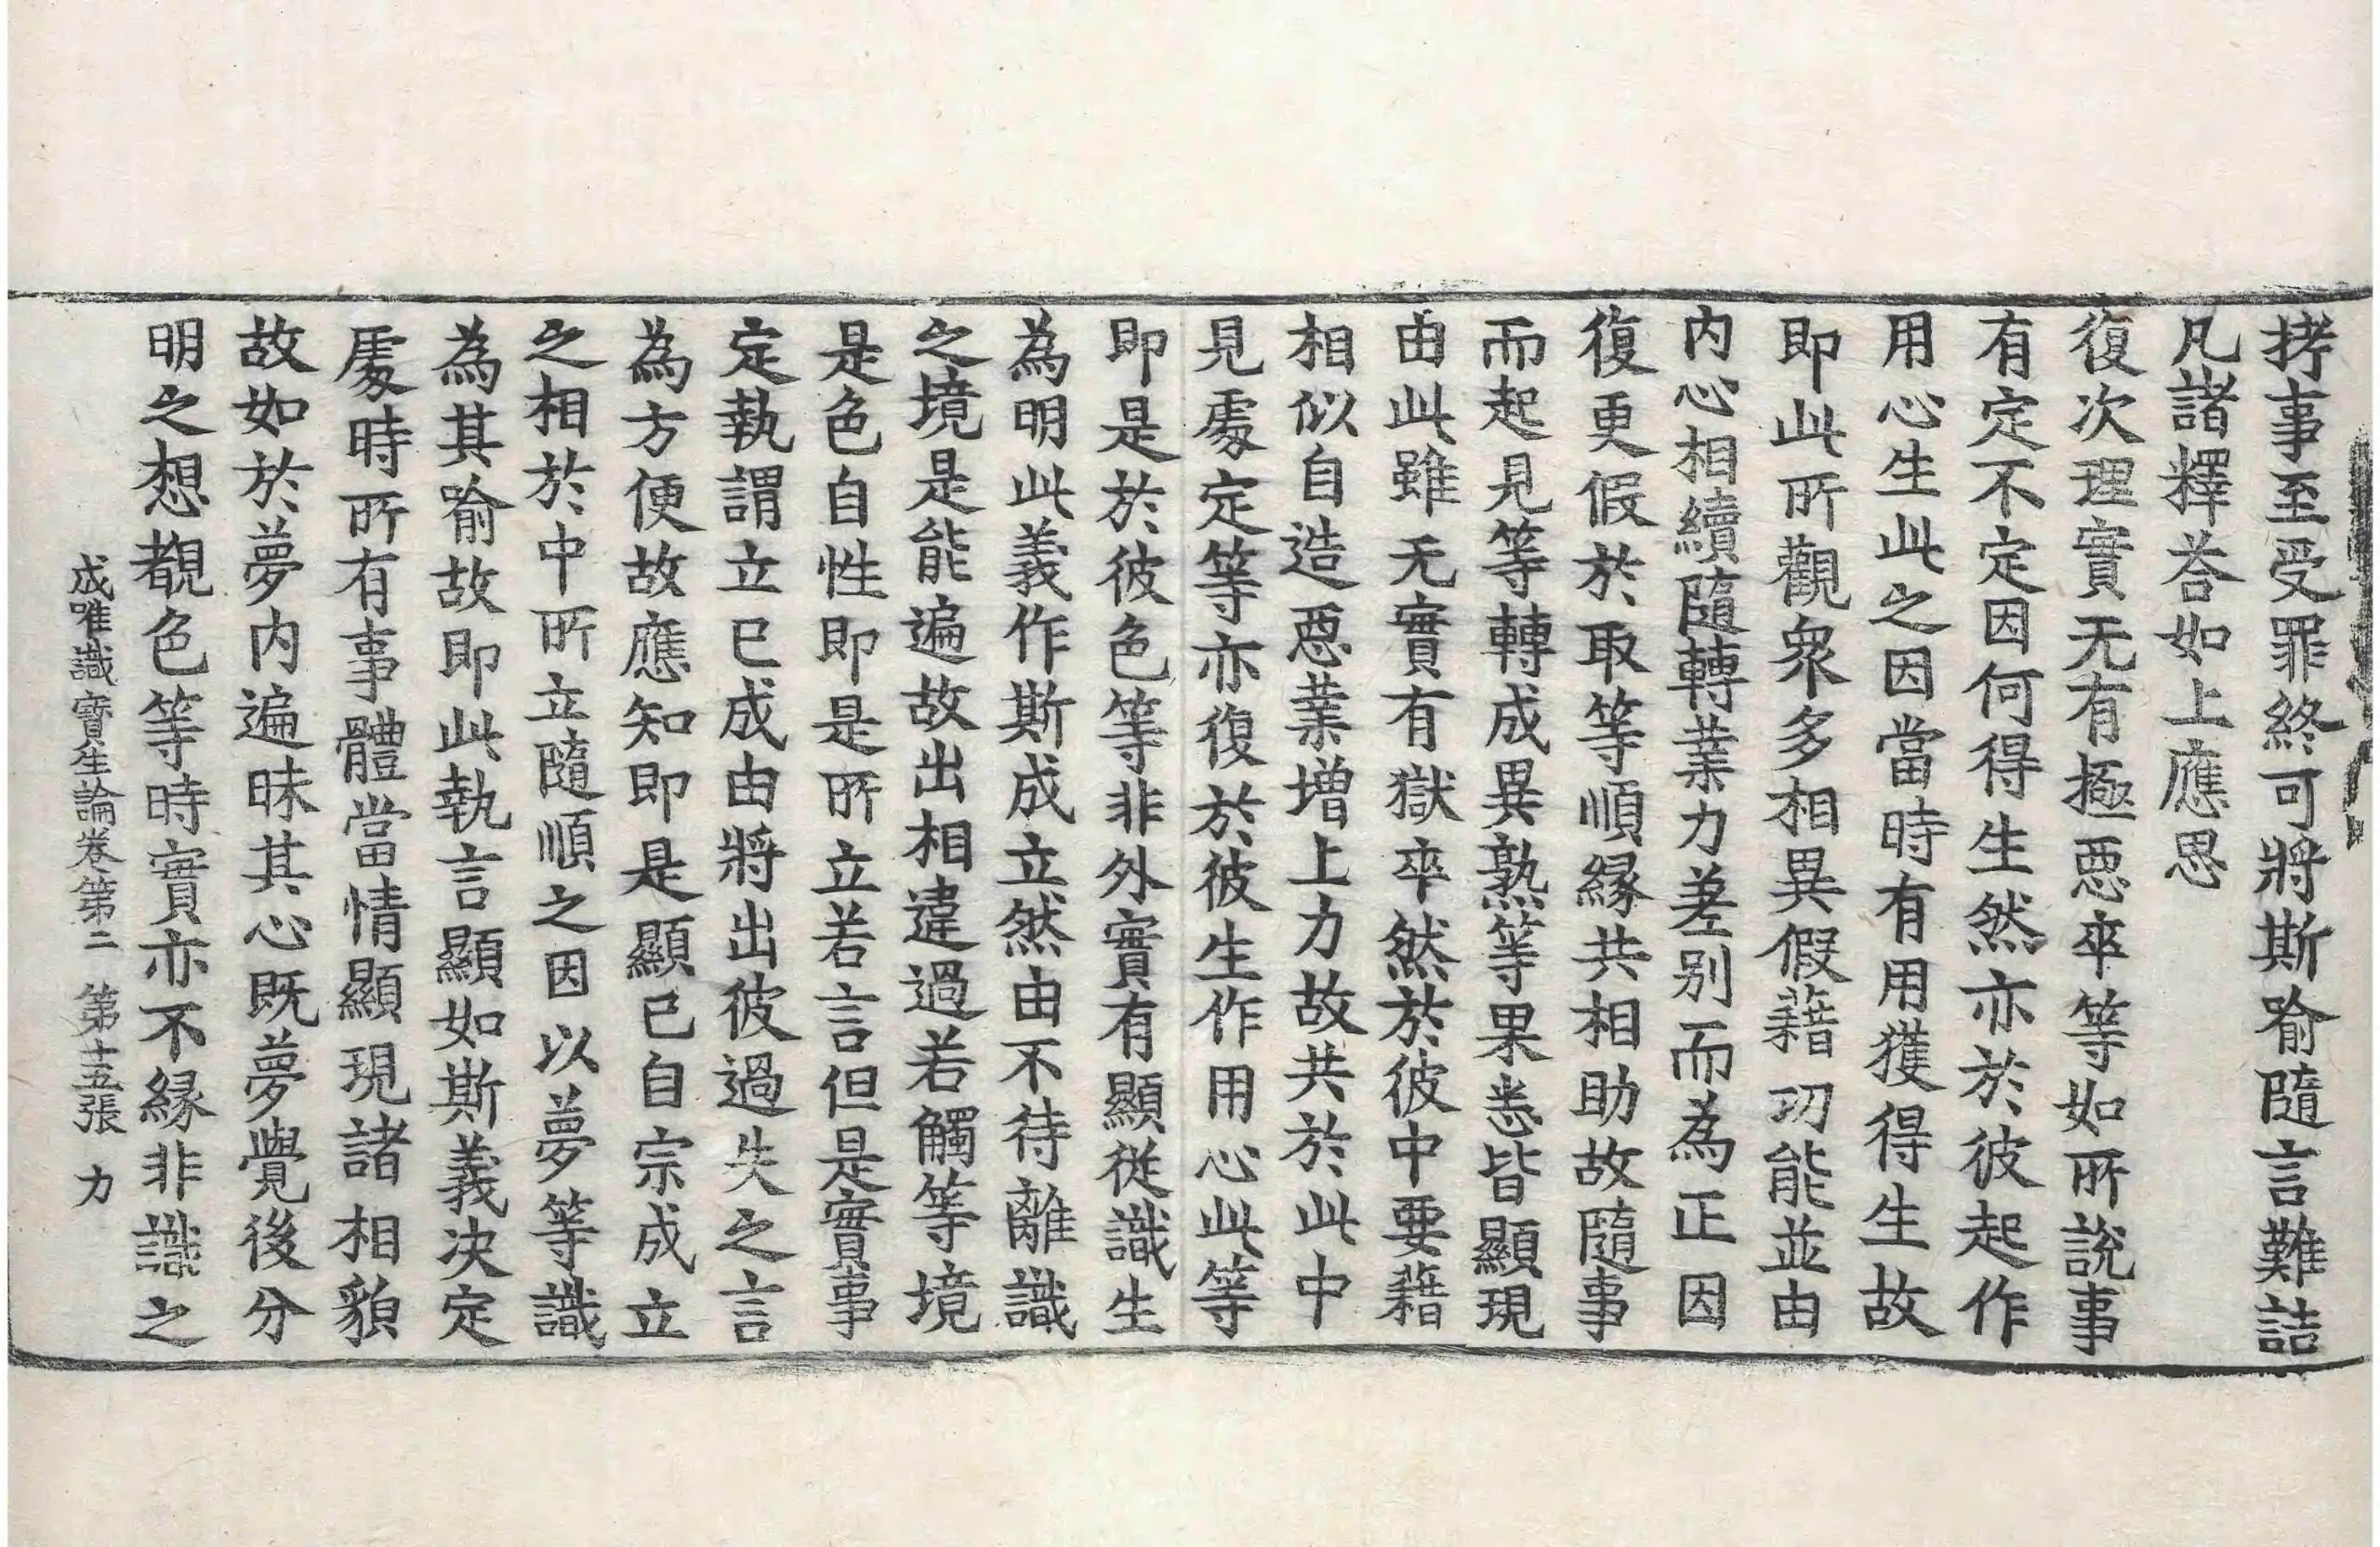 拷事至受罪終可將斯喻隨言難詰
凡諸釋荅如上應思
復次理實无有極惡卒等如所說事
有定不定因何得生然亦於彼起作
用心生此之因當時有用獲得生故
即此所觀衆多相異假藉功能並由
内心相續隨轉業力差别而為正因
復更假於取等順緣共相助故隨事
而起見等轉成異熟等果悉皆顯現
由此雖无實有獄卒然於彼中要藉
相似自造惡業增上力故共於此中
見處定等亦復於彼生作用心此等
即是於彼色等非外實有顯從識生
為明此義作斯成立然由不待離識
之境是能遍故出相違過若觸等境
是色自性即是所立若言但是實事
定執謂立已成由將出彼過失之言
為方便故應知即是顯已自宗成立
之相於中所立隨順之因以夢等識
為其喻故即此執言顯如斯義决定
處時所有事體當情顯現諸相貌
故如於夢内遍昧其心既夢覺後分
明之想覩色等時實亦不緣非識之
成唯識寶生論卷第二 第十五張 力